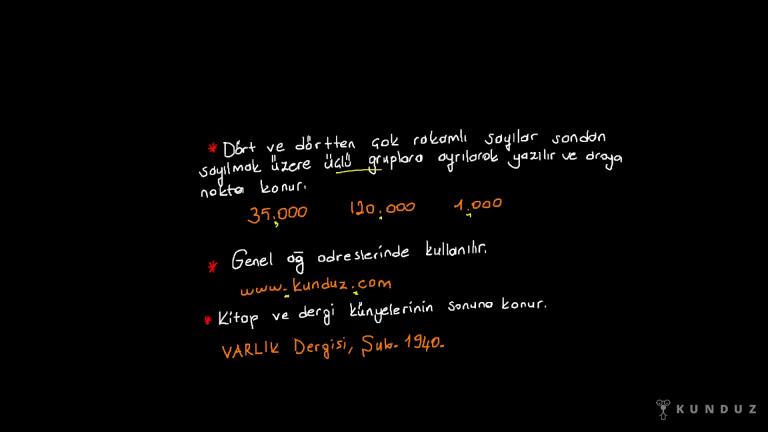 * Dört ve dörtten çok rakamlı sayılar sondan
sayılmak üzere üçlü gruplara ayrılarak yazılır ve araya
nokta konur.
35.000 120.000 1.000
* Genel ağ adreslerinde kullanılır.
www.kunduz.com
* Kitap ve dergi künyelerinin sonuna konur.
VARLIK Dergisi, Şub. 1940.
KUNDUZ